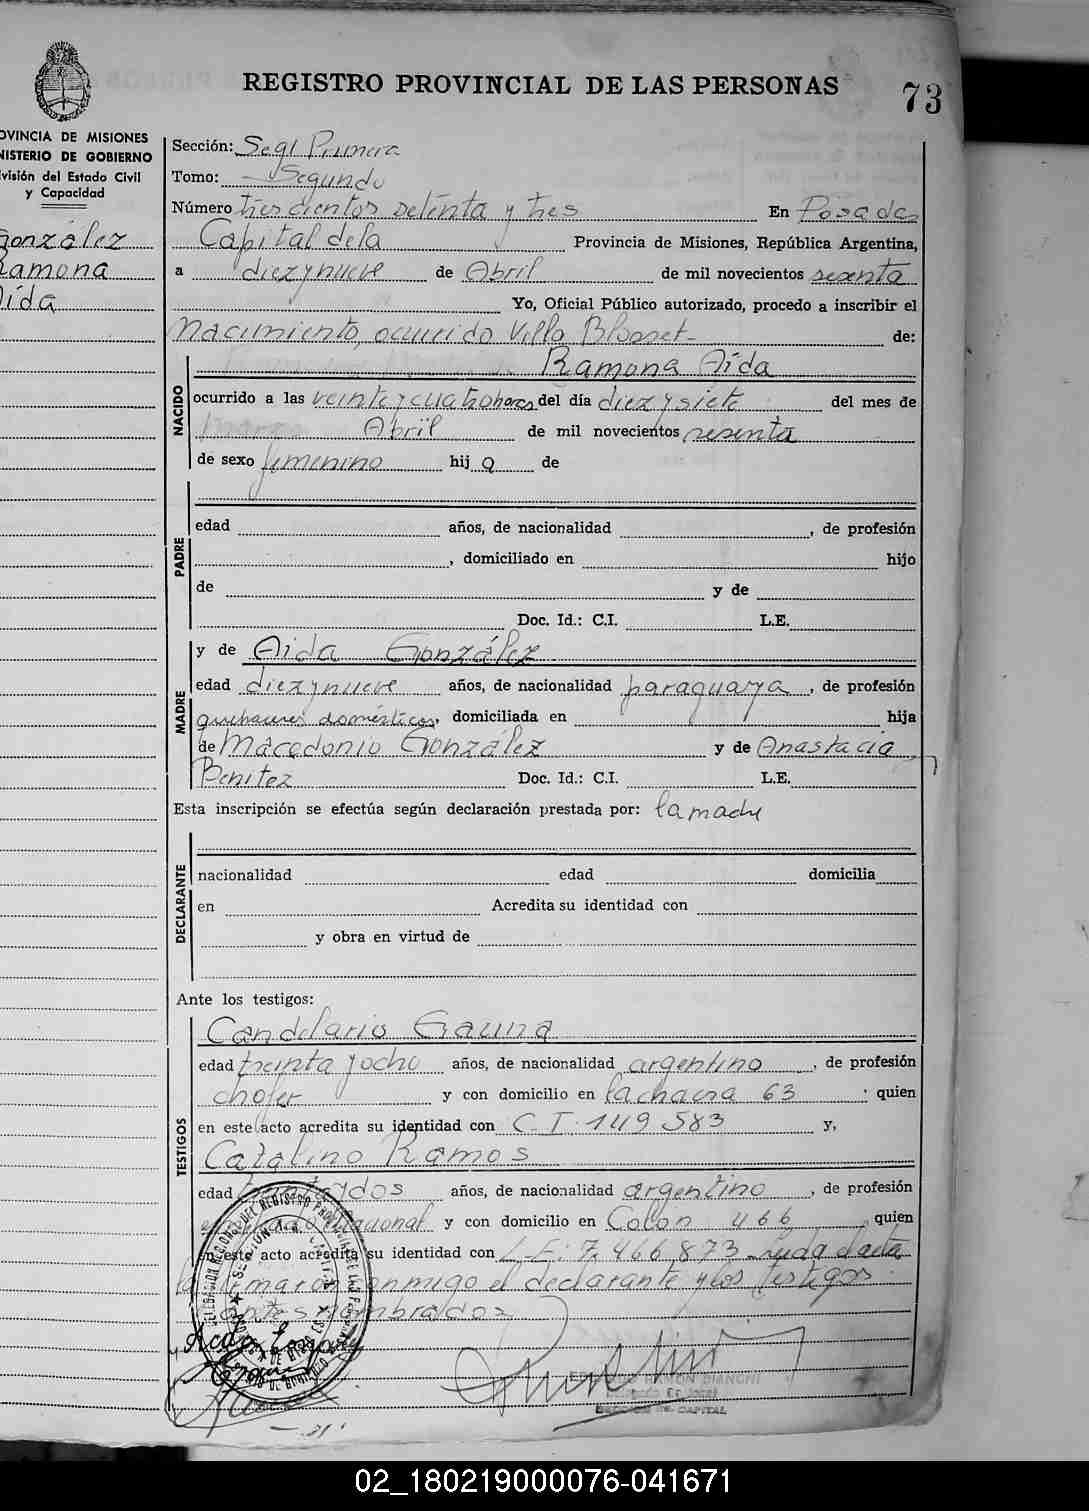 REGISTRO PROVINCIAL DE LAS PERSONAS
73
OVINCIA DE MISIONES
NISTERIO DE GOBIERNO
visión del Estado Civil
y Capacidad
González
Ramona
Aída
Sección: Primera
Tomo: Segundo
Número trescientos setenta y tres En Posadas
Capital de la Provincia de Misiones, República Argentina,
a diez y nueve de Abril de mil novecientos sesenta
Yo, Oficial Público autorizado, procedo a inscribir el
Nacimiento, ocurrido Villa de:
Ramona Aída
NACIDO
ocurrido a las veinte y cuatro horas del día diez y siete del mes de
Abril de mil novecientos sesenta
de sexo femenino hij a de
PADRE
edad años, de nacionalidad , de profesión
, domiciliado en hijo
de y de
Doc. Id.: C.I. L.E.
MADRE
y de Aida González
edad diez y nueve años, de nacionalidad paraguaya , de profesión
quehaceres domésticos, domiciliada en hija
de Macedonio González y de Anastacia
Benitez Doc. Id.: C.I. L.E.
Esta inscripción se efectúa según declaración prestada por: la madre
DECLARANTE
nacionalidad edad domicilia
en Acredita su identidad con
y obra en virtud de
Ante los testigos:
TESTIGOS
Candelario Gauna
edad treinta y ocho años, de nacionalidad argentino , de profesión
chofer y con domicilio en la chacra 63 quien
en este acto acredita su identidad con C.I. 149.583 y,
Catalino Ramos
edad años, de nacionalidad argentino , de profesión
y con domicilio en Colon 466 quien
en este acto acredita su identidad con L.E: 7.466.873 Leída el acta
la firmaron conmigo el declarante y los testigos
antes nombrados
RAMON BIANCHI
02_180219000076-041671